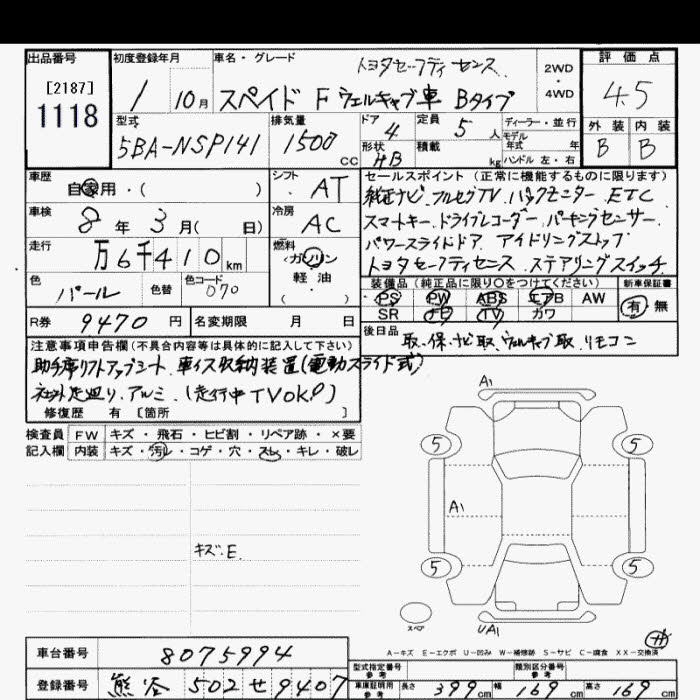 出品番号
[2187]
1118
初度登録年月
1 10月
車名・グレード
トヨタセーフティセンス
スペイド F ウェルキャブ車 Bタイプ
2WD
・
4WD
評価点
4.5
外装 内装
B B
型式
5BA-NSP141
排気量
1500 CC
ドア 4
定員 5人
ディーラー・並行
モデル
年式 年
形状 HB
積載 kg
ハンドル 左・右
車歴
自家用・( )
シフト
AT
車検
8年 3月( 日)
冷房
AC
走行
万6千410km
燃料
ガソリン
軽・油
( )
色
パール
色替
色コード
070
R券 9470円
名変期限 月 日
セールスポイント(正常に機能するものに限ります)
純正ナビ、フルセグTV、バックモニター、ETC
スマートキー、ドライブレコーダー、パーキングセンサー、
パワースライドドア、アイドリングストップ
トヨタセーフティセンス、ステアリングスイッチ
装備品(純正品に限り○をつけてください)
PS PW ABS エアB AW
SR ナビ TV カワ
新車保証書
有・無
後日品
取、保、ナビ取、ウェルキャブ取、リモコン
注意事項申告欄(不具合内容等は具体的に記入して下さい)
助手席リフトアップシート、車イス収納装置(電動スライド式)
社外足廻り、アルミ、(走行中TVOK!)
修復歴 有 [箇所 ]
検査員 FW キズ・飛石・ヒビ割・リペア跡・×要
記入欄 内装 キズ・汚れ・コゲ・穴・スレ・キレ・破レ
キズ、E
A1
5 5
A1
5 5
スペア
UA1
A-キズ E-エクボ U-凹み W-補修跡 S-サビ C-腐食 XX-交換済
車台番号 8075994
登録番号 熊谷 502 せ 9407
型式指定番号
参考
類別区分番号
参考
車庫証明用
参考
長さ 399cm 幅 169cm 高さ 169cm